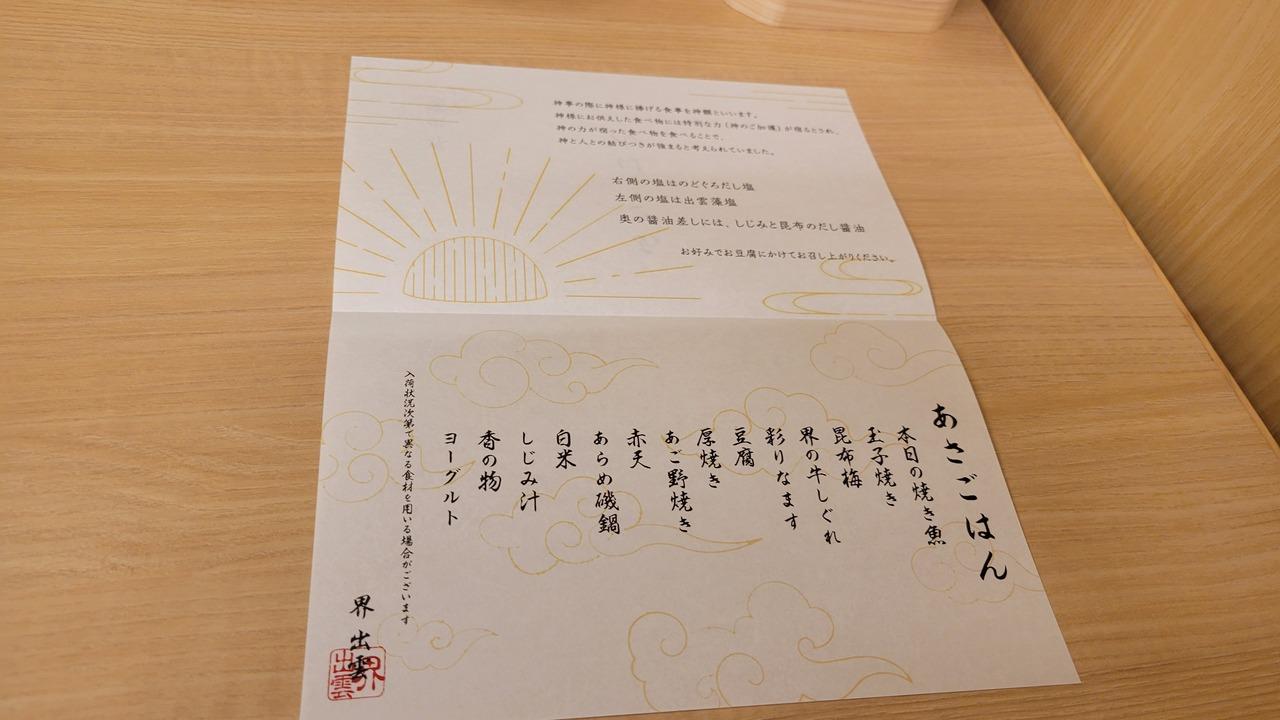 神事の際に神様に捧げる食事を神饌といいます。
神様にお供えした食べ物には特別な力（神のご加護）が宿るとされ、
神の力が宿った食べ物を食べることで、
神と人との結びつきが強まると考えられていました。
右側の塩はのどぐろだし塩
左側の塩は出雲藻塩
奥の醤油差しには、しじみと昆布のだし醤油
お好みでお豆腐にかけてお召し上がりください。
あさごはん
本日の焼き魚
玉子焼き
昆布梅
界の牛しぐれ
彩りなます
豆腐
厚焼き
あご野焼き
赤天
あらめ磯鍋
白米
しじみ汁
香の物
ヨーグルト
入荷状況次第で異なる食材を用いる場合がございます
界 出雲
界出雲